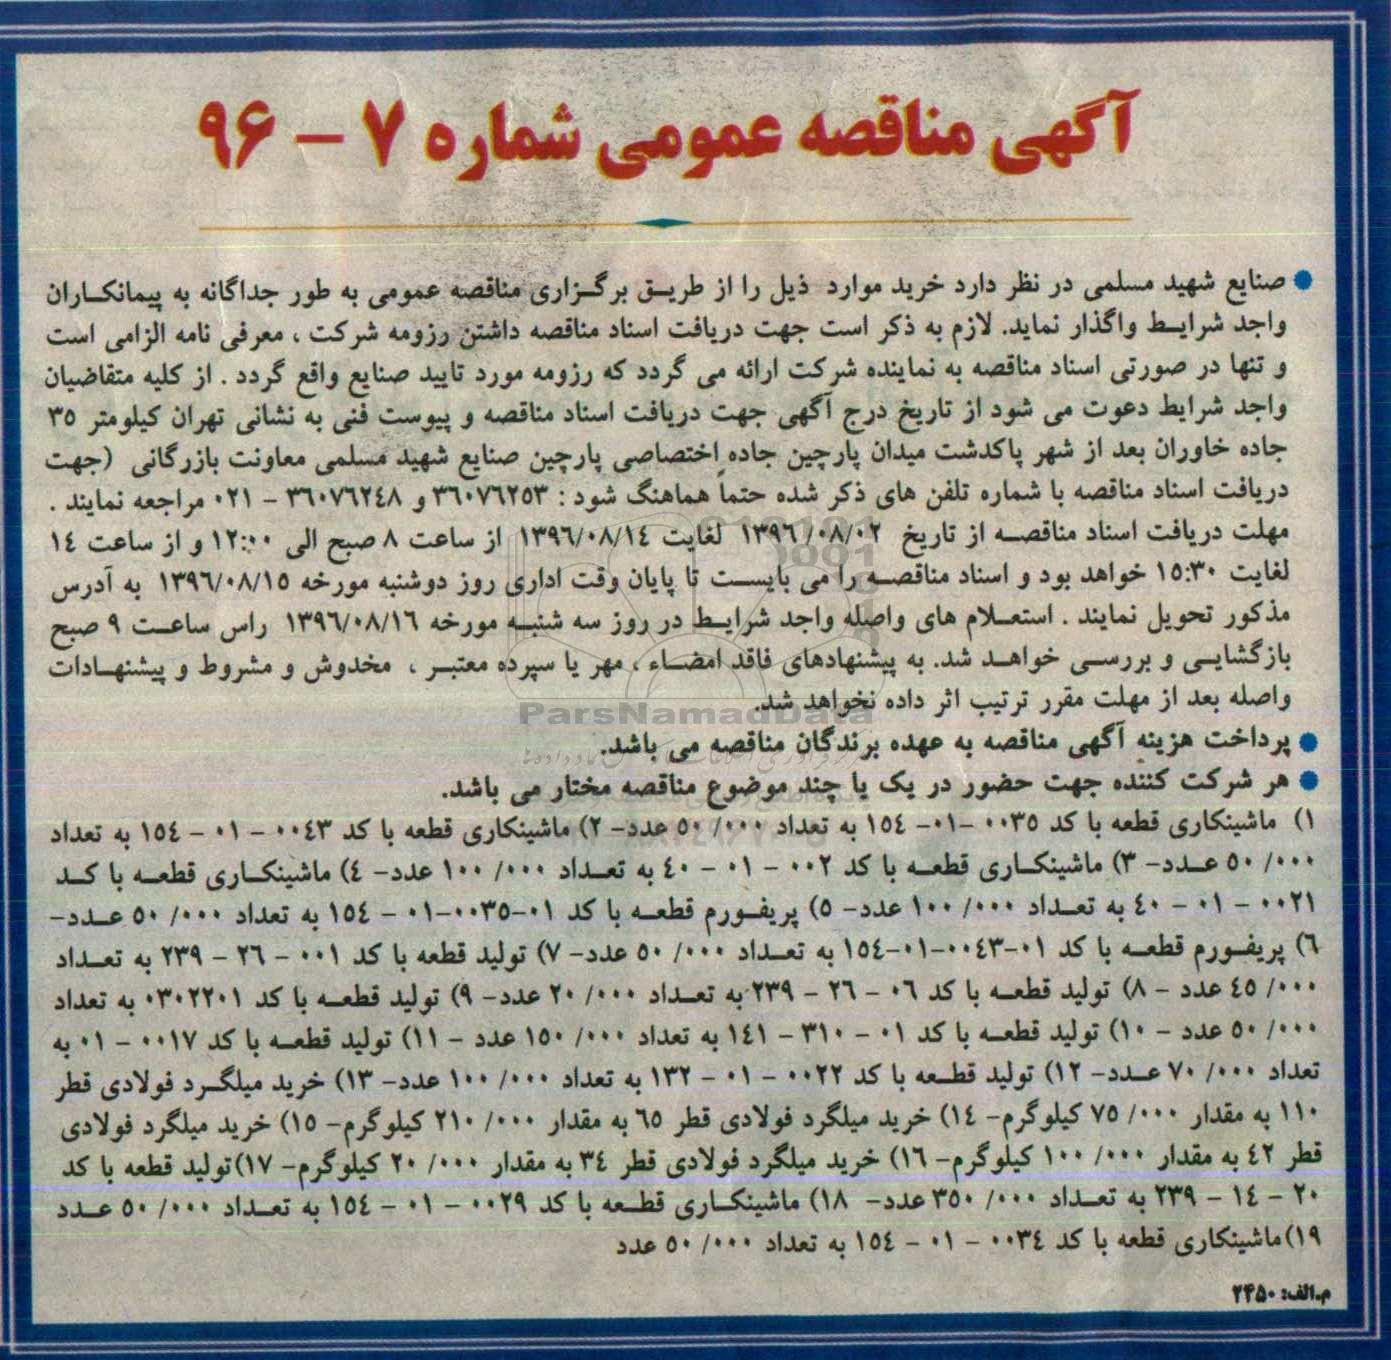 آگهی مناقصه عمومی شماره ۷ – ۹۶
● صنایع شهید مسلمی در نظر دارد خرید موارد ذیل را از طریق برگزاری مناقصه عمومی به طور جداگانه به پیمانکاران
واجد شرایط واگذار نماید. لازم به ذکر است جهت دریافت اسناد مناقصه داشتن رزومه شرکت ، معرفی نامه الزامی است
و تنها در صورتی اسناد مناقصه به نماینده شرکت ارائه می گردد که رزومه مورد تایید صنایع واقع گردد . از کلیه متقاضیان
واجد شرایط دعوت می شود از تاریخ درج آگهی جهت دریافت اسناد مناقصه و پیوست فنی به نشانی تهران کیلومتر ۳۵
جاده خاوران بعد از شهر پاکدشت میدان پارچین جاده اختصاصی پارچین صنایع شهید مسلمی معاونت بازرگانی (جهت
دریافت اسناد مناقصه با شماره تلفن های ذکر شده حتماً هماهنگ شود : ۳۶۰۷۶۲۵۳ و ۳۶۰۷۶۲۴۸ – ۰۲۱ مراجعه نمایند .
مهلت دریافت اسناد مناقصه از تاریخ ۱۳۹۶/۰۸/۰۲ لغایت ۱۳۹۶/۰۸/۱۴ از ساعت ۸ صبح الی ۱۲:۰۰ و از ساعت ۱۴
لغایت ۱۵:۳۰ خواهد بود و اسناد مناقصه را می بایست تا پایان وقت اداری روز دوشنبه مورخه ۱۳۹۶/۰۸/۱۵ به آدرس
مذکور تحویل نمایند . استعلام های واصله واجد شرایط در روز سه شنبه مورخه ۱۳۹۶/۰۸/۱۶ راس ساعت ۹ صبح
بازگشایی و بررسی خواهد شد. به پیشنهادهای فاقد امضاء ، مهر یا سپرده معتبر ، مخدوش و مشروط و پیشنهادات
واصله بعد از مهلت مقرر ترتیب اثر داده نخواهد شد.
ParsNamadData
● پرداخت هزینه آگهی مناقصه به عهده برندگان مناقصه می باشد.
● هر شرکت کننده جهت حضور در یک یا چند موضوع مناقصه مختار می باشد.
۱) ماشینکاری قطعه با کد ۰۰۳۵ –۰۱– ۱۵۴ به تعداد ۵۰/۰۰۰ عدد– ۲) ماشینکاری قطعه با کد ۰۰۴۳ – ۰۱ – ۱۵۴ به تعداد
۵۰/۰۰۰ عدد– ۳) ماشینکاری قطعه با کد ۰۰۲ – ۰۱ – ۴۰ به تعداد ۱۰۰/۰۰۰ عدد– ۴) ماشینکاری قطعه با کد
۰۰۲۱ – ۰۱ – ۴۰ به تعداد ۱۰۰/۰۰۰ عدد– ۵) پریفورم قطعه با کد ۰۱–۰۰۳۵–۰۱ – ۱۵۴ به تعداد ۵۰/۰۰۰ عدد–
۶) پریفورم قطعه با کد ۰۱–۰۰۴۳–۰۱–۱۵۴ به تعداد ۵۰/۰۰۰ عدد– ۷) تولید قطعه با کد ۰۰۱ – ۲۶ – ۲۳۹ به تعداد
۴۵/۰۰۰ عدد – ۸) تولید قطعه با کد ۰۶ – ۲۶ – ۲۳۹ به تعداد ۲۰/۰۰۰ عدد– ۹) تولید قطعه با کد ۰۳۰۲۲۰۱ به تعداد
۵۰/۰۰۰ عدد – ۱۰) تولید قطعه با کد ۰۱ – ۳۱۰ – ۱۴۱ به تعداد ۱۵۰/۰۰۰ عدد – ۱۱) تولید قطعه با کد ۰۰۱۷ – ۰۱ به
تعداد ۷۰/۰۰۰ عدد– ۱۲) تولید قطعه با کد ۰۰۲۲ – ۰۱ – ۱۳۲ به تعداد ۱۰۰/۰۰۰ عدد– ۱۳) خرید میلگرد فولادی قطر
۱۱۰ به مقدار ۷۵/۰۰۰ کیلوگرم– ۱۴) خرید میلگرد فولادی قطر ۶۵ به مقدار ۲۱۰/۰۰۰ کیلوگرم– ۱۵) خرید میلگرد فولادی
قطر ۴۲ به مقدار ۱۰۰/۰۰۰ کیلوگرم– ۱۶) خرید میلگرد فولادی قطر ۳۴ به مقدار ۲۰/۰۰۰ کیلوگرم– ۱۷)تولید قطعه با کد
۲۰ – ۱۴ – ۲۳۹ به تعداد ۳۵۰/۰۰۰ عدد– ۱۸) ماشینکاری قطعه با کد ۰۰۲۹ – ۰۱ – ۱۵۴ به تعداد ۵۰/۰۰۰ عدد
۱۹)ماشینکاری قطعه با کد ۰۰۳۴ – ۰۱ – ۱۵۴ به تعداد ۵۰/۰۰۰ عدد
م.الف: ۲۴۵۰